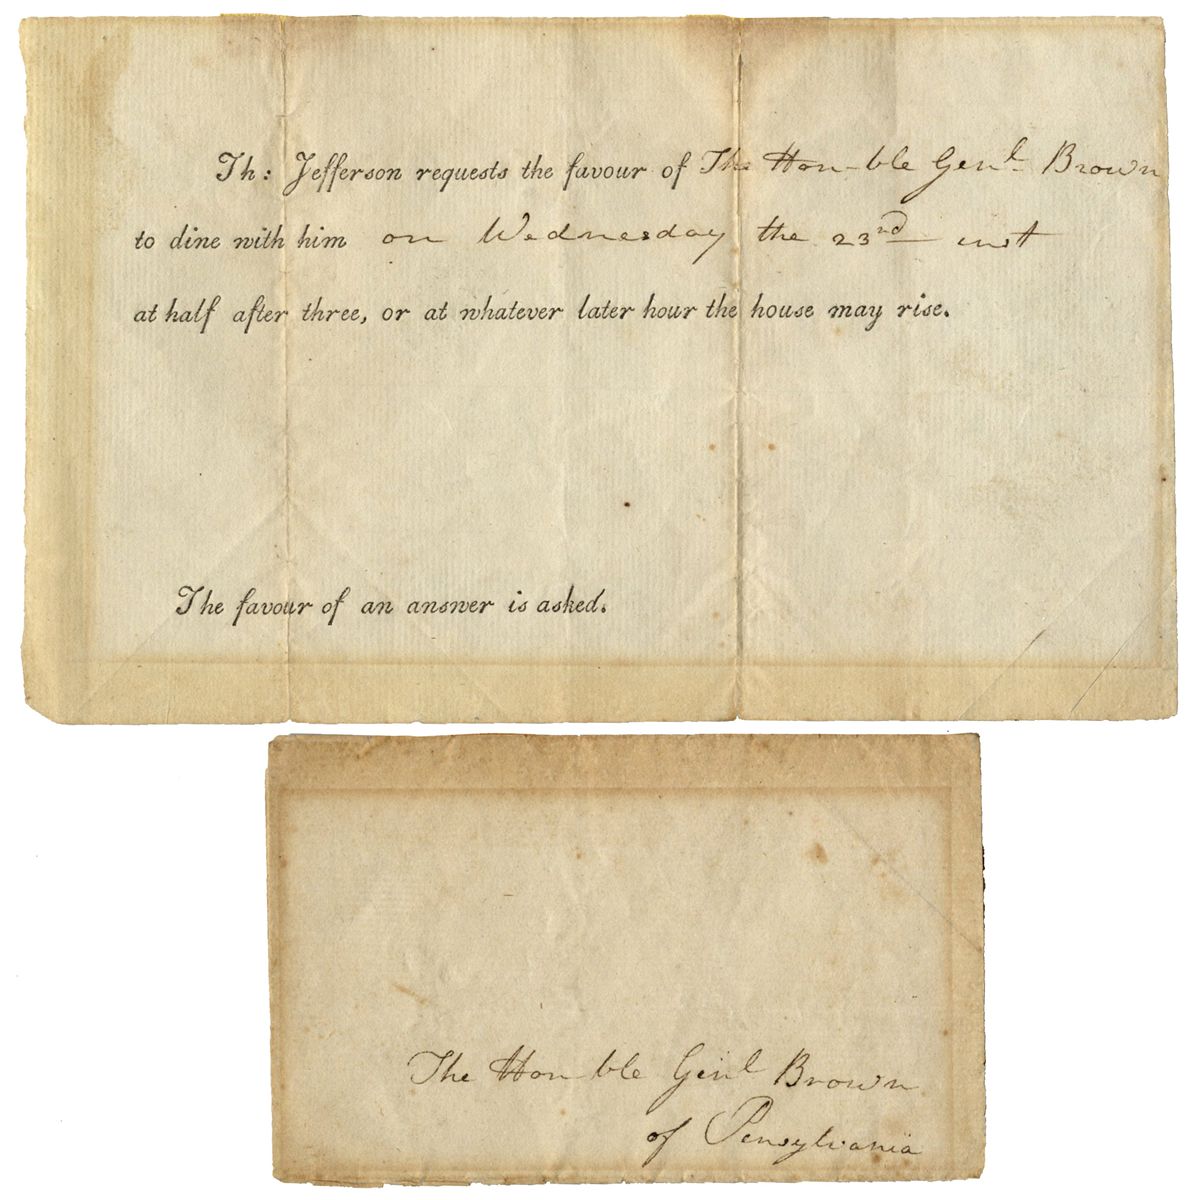 Th: Jefferson requests the favour of The Hon-ble Genl. Brown
to dine with him on Wednesday the 23nd inst
at half after three, or at whatever later hour the house may rise.
The favour of an answer is asked.
The Honble Genl Brown
of Pensylvania